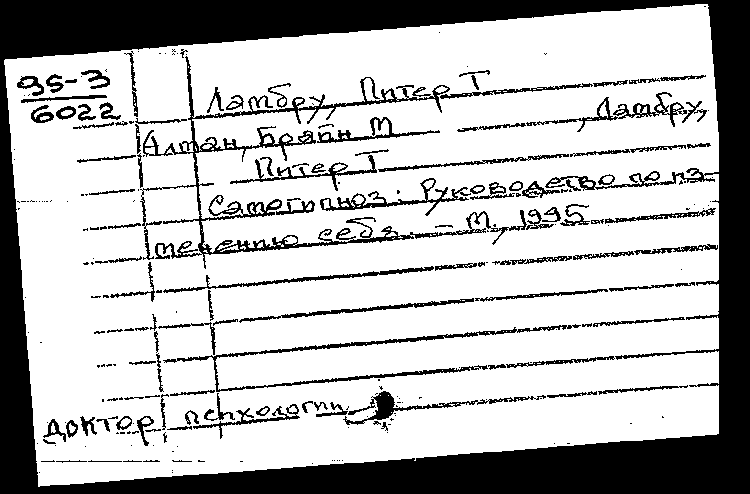 95-3
6022
Ламбру, Питер Т
Алман, Брайн М , Ламбру,
Питер Т
Самогипноз: Руководство по из-
менению себя. – М., 1995
доктор психологии